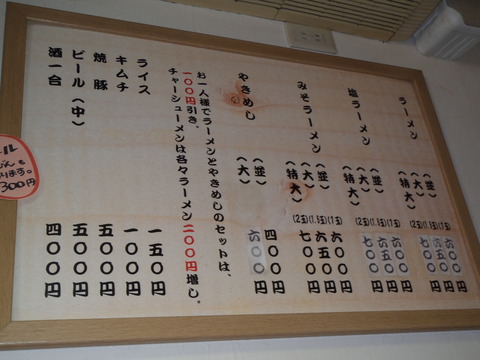 ラーメン
(並) (1玉) 六〇〇円
(大) (1.5玉) 六五〇円
(特大) (2玉) 七〇〇円
塩ラーメン
(並) (1玉) 六〇〇円
(大) (1.5玉) 六五〇円
(特大) (2玉) 七〇〇円
みそラーメン
(並) (1玉) 六〇〇円
(大) (1.5玉) 六五〇円
(特大) (2玉) 七〇〇円
やきめし
(並) 四〇〇円
(大) 六〇〇円
お一人様でラーメンとやきめしのセットは、
一〇〇円引き。
チャーシューメンは各々ラーメン二〇〇円増し。
ライス 一五〇円
キムチ 一〇〇円
焼豚 五〇〇円
ビール(中) 五〇〇円
酒一合 四〇〇円
ール
も
ります。
300円